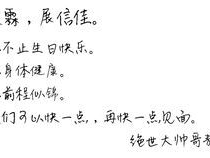 霖，展信佳。
不止生日快乐。
身体健康。
前程似锦。
们可以快一点，再快一点见面。
绝世大帅哥